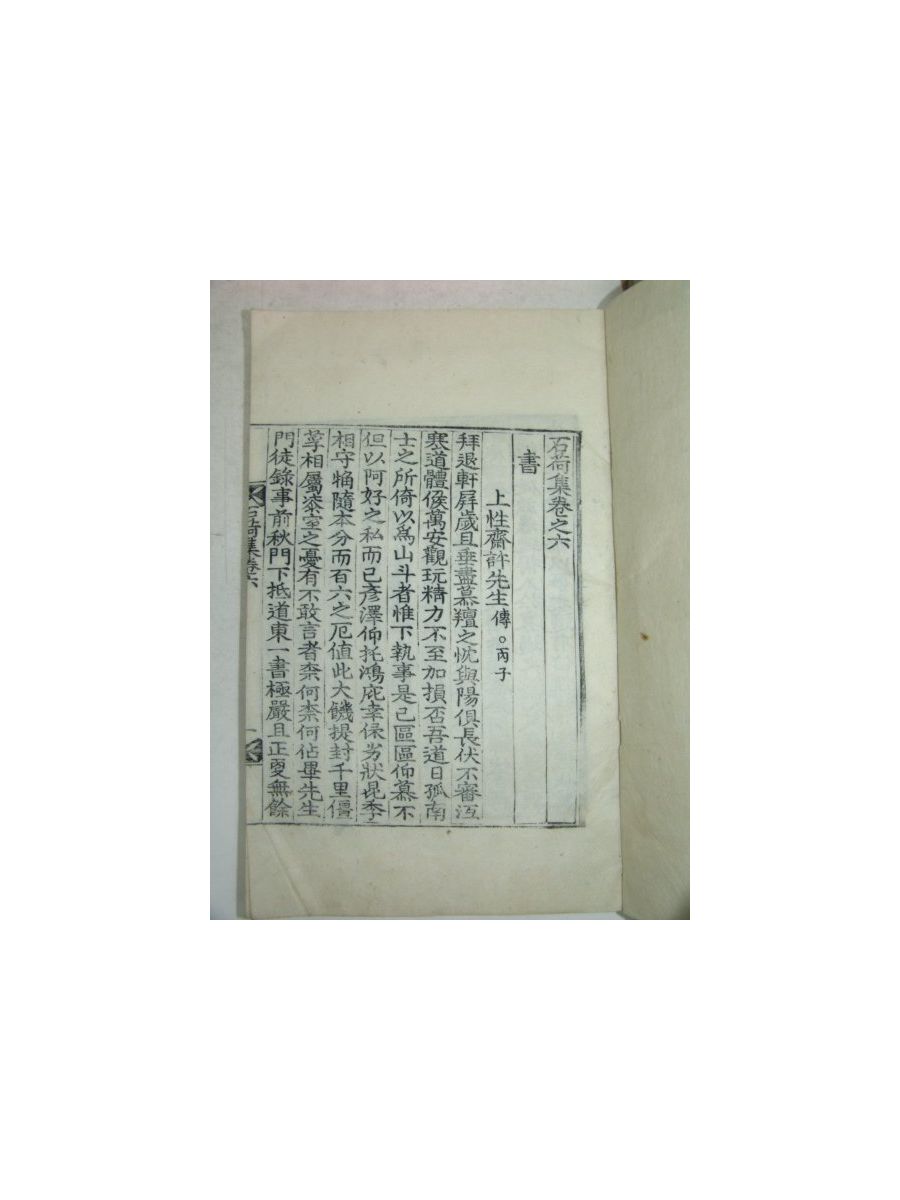 石荷集卷之六
書
上性齋許先生傳○丙子
拜退軒屛歲且垂盡慕羶之忱與陽俱長伏不審沍
寒道體候萬安觀玩精力不至加損否吾道日孤南
士之所倚以爲山斗者惟下執事是已區區仰慕不
但以阿好之私而已彦澤仰托鴻庇幸保劣狀昆季
相守犻隨本分而百六之厄値此大饑提封千里僵
莩相屬漆室之憂有不敢言者柰何柰何佔畢先生
門徒錄事前秋門下抵道東一書極嚴且正更無餘
石荷集卷六
一